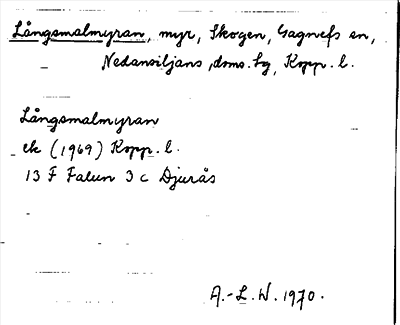 Långsmalmyran, myr, Skogen, Gagnefs sn,
Nedansiljans doms. hg, Kopp. l.
Långsmalmyran
ek (1969) Kopp. l.
13 F Falun 3 c Djurås
A.-L. W. 1970.